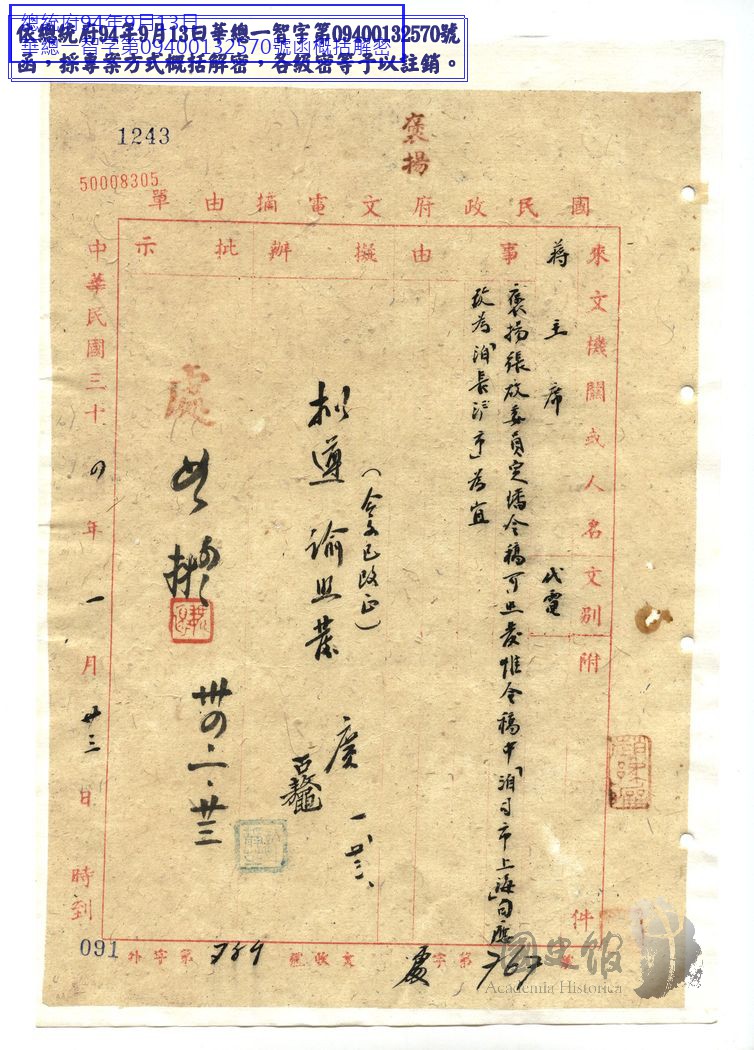 總統府94年9月13日
華總一智字第09400132570號函概括解密
依總統府94年9月13日華總一智字第09400132570號
函，採專案方式概括解密，各級密等予以註銷。
1243
褒揚
50008305
國民政府文電摘由單
來文機關或人名
文別
附
件
蔣主席
代電
事由
擬辦
批示
褒揚張故委員定璠令稿可照發惟令稿中「洎司市上海」句應
改為「洎長滬市」為宜
擬遵諭照發
(令文已改正)
廣
一、廿三、
卅四、二、廿三
中華民國三十四年一月廿三日時到
091
外字第 號
收文
處字第 號
國史館
Academia Historica